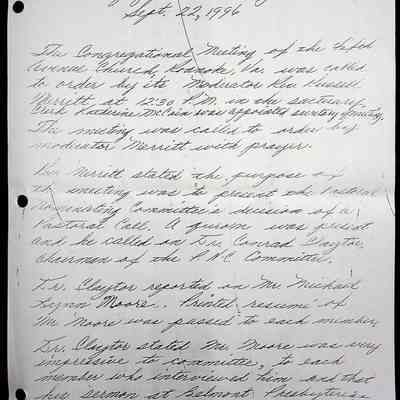 Sept. 22, 1996
The Congregational Meeting of the
Avenue Church, Roanoke, Va. was called
to order by its Moderator Rev. Russell
Merritt at 12:30 P.M. in the sactuary.
Clerk Katherine McCain was appointed secretary of meeting.
The meeting was called to order by
moderator Merritt with prayer.
Rev. Merritt stated the purpose of
the meeting was to present the Pastoral
Nominating Committee's decision of a
Pastoral Call. A quorom was present
and he called on Dr. Conrad Claytor,
chairman of the P.N.C Committee.
Dr. Claytor reported on Mr. Michael
Lynn Moore. Printed resume' of
Mr. Moore was passed to each member
Dr. Claytor stated Mr. Moore was very
impressive to committee, to each
member who interviewed him and that
his sermon at Belmont Presbyterian